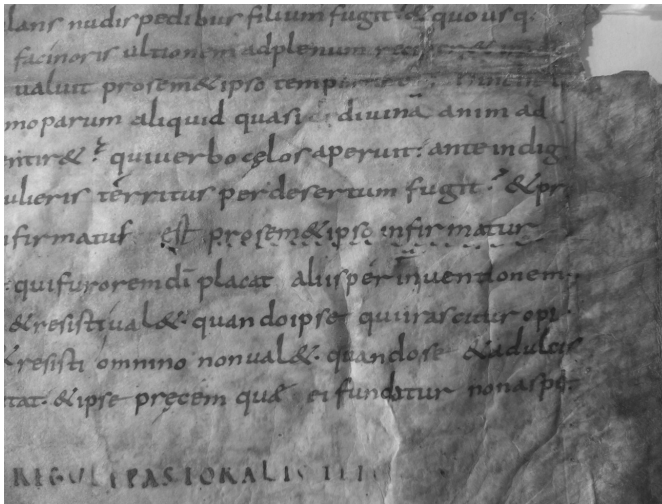 lans nudis pedibus filium fugit & quousq.
facinoris ultionem adplenum
ualuit prosem&ipso tempore
moparum aliquid quasi diuinā anim ad
ntir& quiuerbo cęlos aperuit. ante indig
ulieris territus per desertum fugit & pr
firmatus est prosem&ipso infirmatur
qui furorem dī placat aliis per inuentionem
& resisti ual& quando ipse qui irascitur opi
resisti omnino non ual& quando se & adulcis
tat. & ipse pręcem quę ei funditur non aspe
REGULE PASTORALIS III